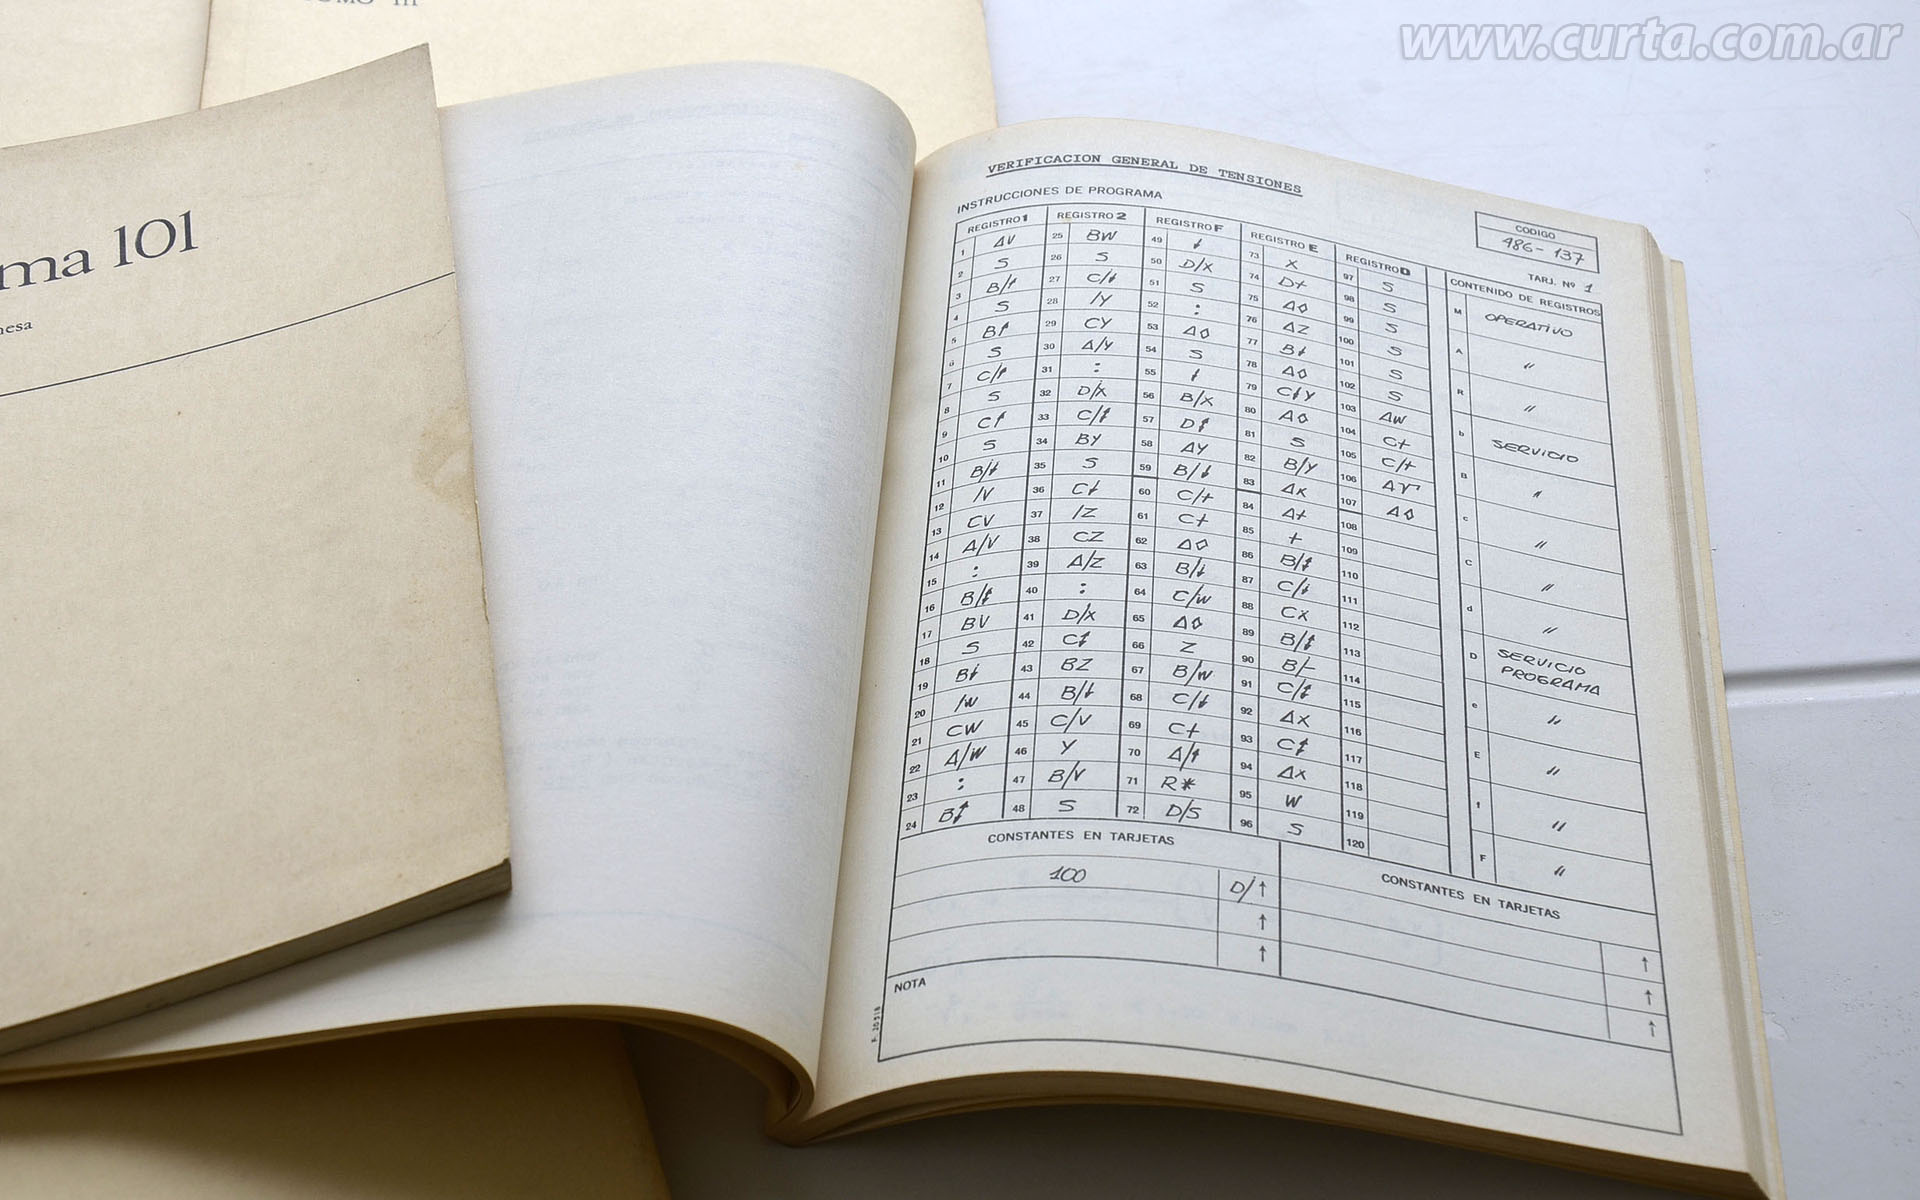 www.curta.com.ar
TOMO III
ma 101
mesa
VERIFICACION GENERAL DE TENSIONES
INSTRUCCIONES DE PROGRAMA
CODIGO
486-137
TARJ. Nº 1
REGISTRO 1
1 ΔV
2 S
3 B/↑
4 S
5 B↑
6 S
7 C/↑
8 S
9 C↑
10 S
11 B/↓
12 /V
13 CV
14 Δ/V
15 :
16 B/↕
17 BV
18 S
19 B↓
20 /W
21 CW
22 Δ/W
23 :
24 B↕
REGISTRO 2
25 BW
26 S
27 C/↓
28 /Y
29 CY
30 Δ/Y
31 :
32 D/X
33 C/↕
34 BY
35 S
36 C↓
37 /Z
38 CZ
39 Δ/Z
40 :
41 D/X
42 C↕
43 BZ
44 B/↓
45 C/V
46 Y
47 B/V
48 S
REGISTRO F
49 ↓
50 D/X
51 S
52 :
53 Δ◊
54 S
55 ↓
56 B/X
57 D↕
58 ΔY
59 B/↓
60 C/+
61 C+
62 Δ◊
63 B/↓
64 C/W
65 Δ◊
66 Z
67 B/W
68 C/↓
69 C+
70 Δ/↑
71 R*
72 D/S
REGISTRO E
73 X
74 D+
75 Δ◊
76 ΔZ
77 B↓
78 Δ◊
79 C↓Y
80 Δ◊
81 S
82 B/Y
83 ΔX
84 Δ+
85 +
86 B/↕
87 C/↓
88 CX
89 B/↕
90 B/-
91 C/↕
92 ΔX
93 C↕
94 ΔX
95 W
96 S
REGISTRO D
97 S
98 S
99 S
100 S
101 S
102 S
103 ΔW
104 C+
105 C/+
106 ΔY
107 Δ◊
108
109
110
111
112
113
114
115
116
117
118
119
120
CONTENIDO DE REGISTROS
M OPERATIVO
A "
R "
b SERVICIO
B "
c "
C "
d "
D SERVICIO
PROGRAMA
e "
E "
f "
F "
CONSTANTES EN TARJETAS
100 D/↑
↑
↑
CONSTANTES EN TARJETAS
↑
↑
↑
NOTA